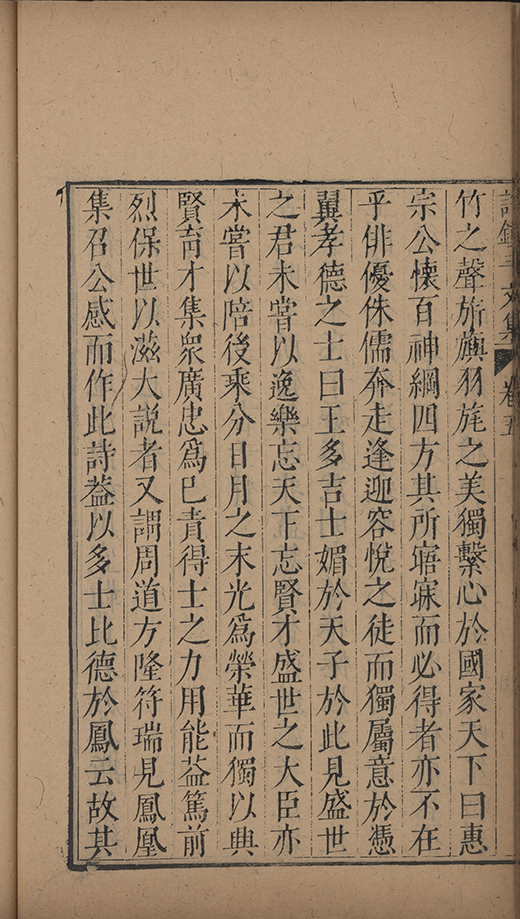 文集 卷五
竹之聲旂旗羽旄之美獨繫心於國家天下曰惠
宗公懷百神綱四方其所寤寐而必得者亦不在
乎俳優侏儒奔走逢迎容悅之徒而獨屬意於憑
翼孝德之士曰王多吉士媚於天子於此見盛世
之君未嘗以逸樂忘天下忘賢才盛世之大臣亦
未嘗以陪後乘分日月之末光爲榮華而獨以典
賢育才集衆廣忠爲已責得士之力用能益篤前
烈保世以滋大說者又謂周道方隆符瑞見鳳凰
集召公感而作此詩葢以多士比德於鳳云故其